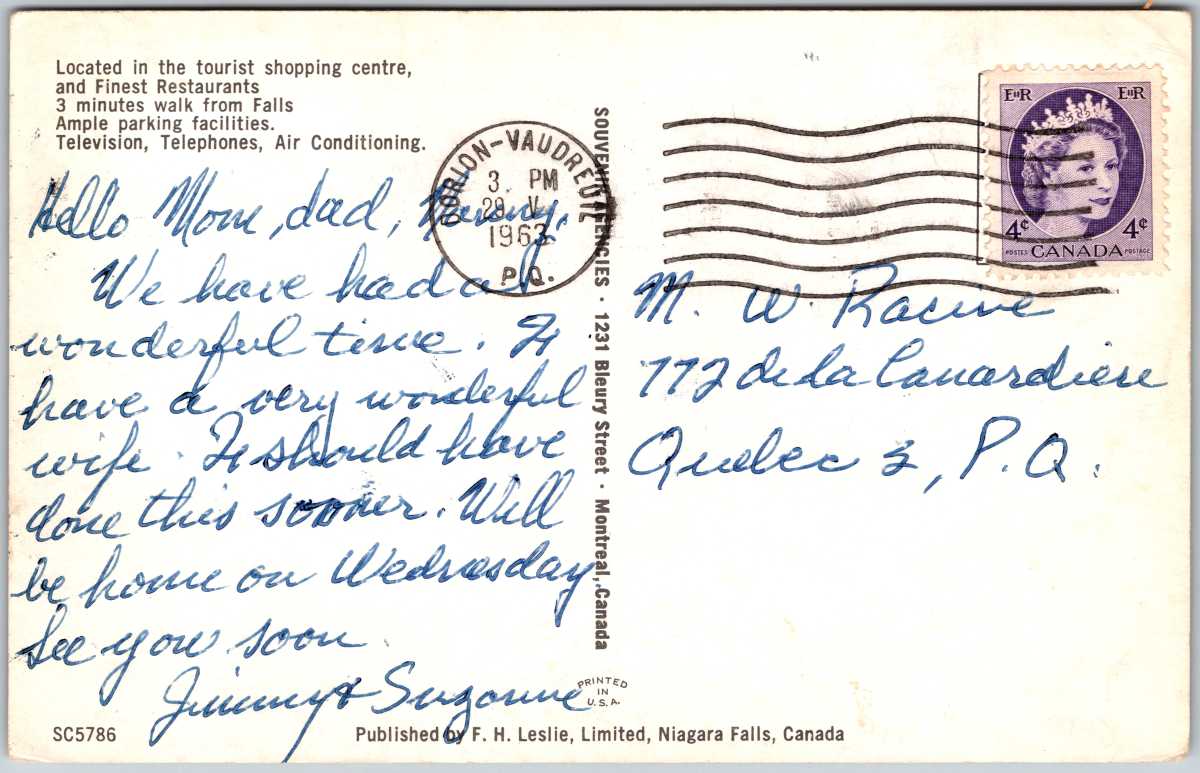 Located in the tourist shopping centre,
and Finest Restaurants
3 minutes walk from Falls
Ample parking facilities.
Television, Telephones, Air Conditioning.
Hello Mom, dad,
We have had a
wonderful time. I
have a very wonderful
wife. I should have
done this sooner. Will
be home on Wednesday
See you soon
Jimmy & Suzanne
SC5786
DORION-VAUDREUIL
3. PM
29 V
1963
P.Q.
SOUVENIR AGENCIES · 1231 Bleury Street · Montreal, Canada
PRINTED
IN
U.S.A.
Published by F. H. Leslie, Limited, Niagara Falls, Canada
EIIR EIIR
4¢ 4¢
POSTES CANADA POSTAGE
M. W. Racine
772 de la Canardiere
Quebec 3, P.Q.